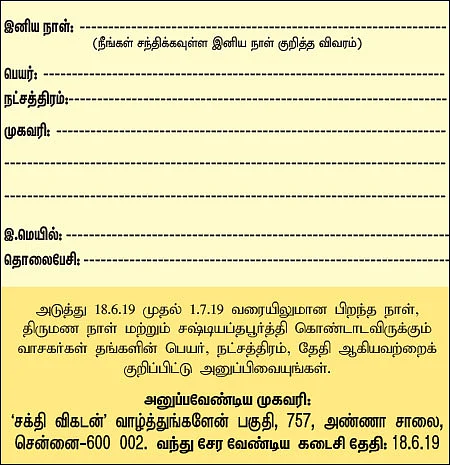 இனிய நாள்:
(நீங்கள் சந்திக்கவுள்ள இனிய நாள் குறித்த விவரம்)
பெயர்:
நட்சத்திரம்:
முகவரி:
இ.மெயில்:
தொலைபேசி:
அடுத்து 18.6.19 முதல் 1.7.19 வரையிலுமான பிறந்த நாள்,
திருமண நாள் மற்றும் சஷ்டியப்தபூர்த்தி கொண்டாடவிருக்கும்
வாசகர்கள் தங்களின் பெயர், நட்சத்திரம், தேதி ஆகியவற்றைக்
குறிப்பிட்டு அனுப்பிவையுங்கள்.
அனுப்பவேண்டிய முகவரி:
‘சக்தி விகடன்’ வாழ்த்துங்களேன் பகுதி, 757, அண்ணா சாலை,
சென்னை-600 002. வந்து சேர வேண்டிய கடைசி தேதி: 18.6.19